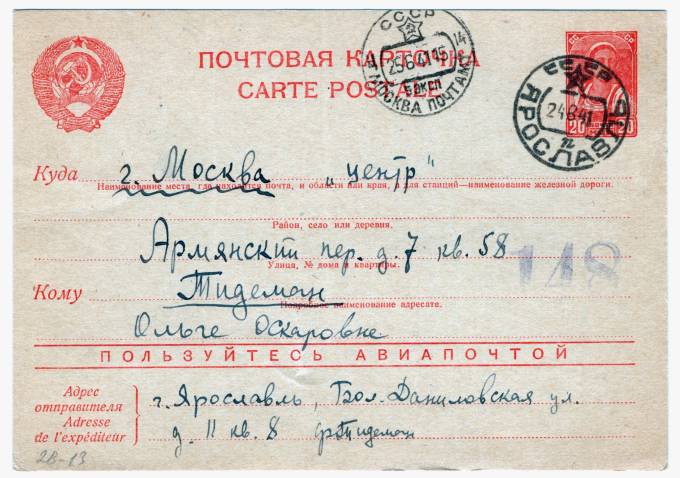 СССР
14 25641 15 14
5 ЭКСП
МОСКВА ПОЧТАМТ
ПОЧТОВАЯ КАРТОЧКА
CARTE POSTALE
СССР
24641
ЯРОСЛАВЛЬ
20 20
Куда г. Москва „центр"
Наименование места, где находится почта, и области или края, а для станций—наименование железной дороги.
Район, село или деревня.
Армянский пер. д. 7 кв. 58
Улица, № дома и квартиры.
148
Кому Тидеман
Подробное наименование адресата.
Ольге Оскаровне
ПОЛЬЗУЙТЕСЬ АВИАПОЧТОЙ
Адрес отправителя
Adresse de l'expéditeur
г. Ярославль, Бол. Даниловская ул.
д. 11 кв. 8 Тидеман
2В-13